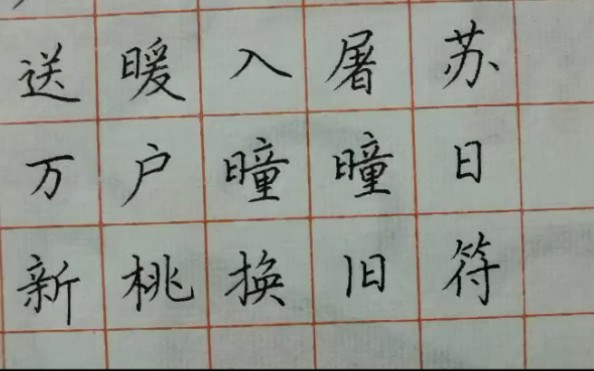 送暖入屠苏
万户曈曈日
新桃换旧符